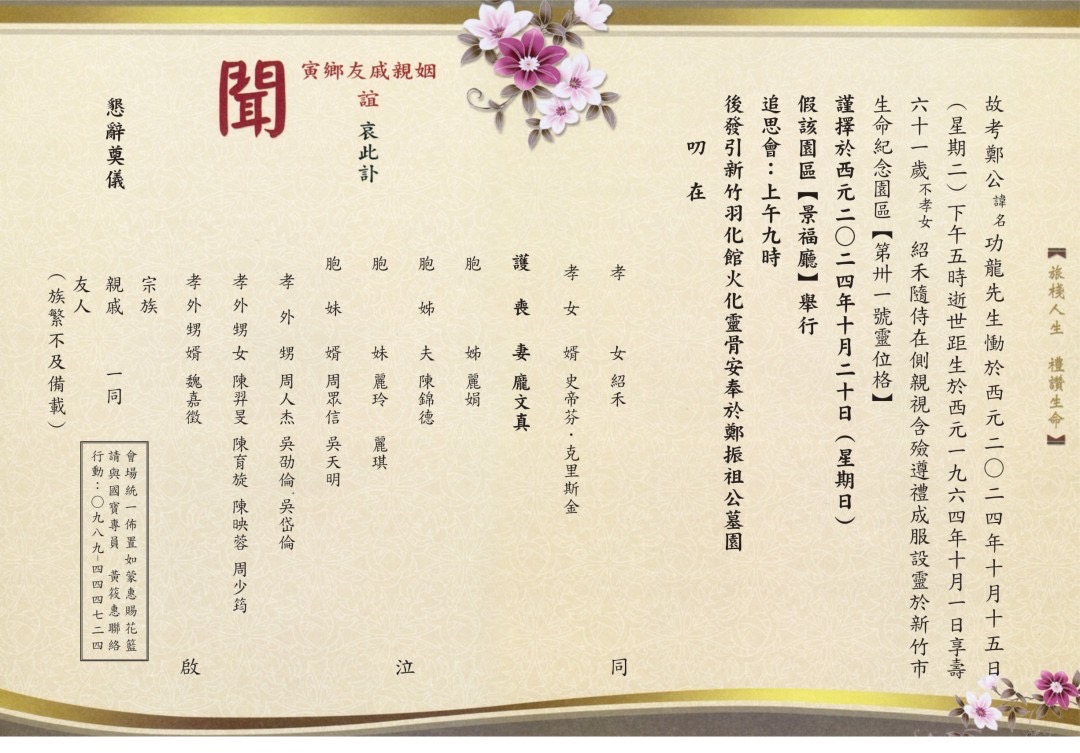 【旅棧人生　禮讚生命】
故考鄭公諱名功龍先生慟於西元二〇二四年十月十五日
（星期二）下午五時逝世距生於西元一九六四年十月一日享壽
六十一歲不孝女紹禾隨侍在側親視含殮遵禮成服設靈於新竹市
生命紀念園區【第卅一號靈位格】
謹擇於西元二〇二四年十月二十日（星期日）
假該園區【景福廳】舉行
追思會：上午九時
後發引新竹羽化館火化靈骨安奉於鄭振祖公墓園
叨在
寅鄉友戚親姻
誼　哀此訃
聞
孝女　紹禾
孝女婿　史帝芬・克里斯金
護喪妻　龐文真
胞姊　麗娟
胞姊夫　陳錦德
胞妹　麗玲　麗琪
胞妹婿　周眾信　吳天明
孝外甥　周人杰　吳劭倫．吳岱倫
孝外甥女　陳羿旻　陳育旋　陳映蓉　周少筠
孝外甥婿　魏嘉徵
宗族
親戚　一同
友人
（族繁不及備載）
同　泣　啟
懇辭奠儀
會場統一佈置如蒙惠賜花籃
請與國寶專員　黃筱惠聯絡
行動：〇九八九-四四四七二四